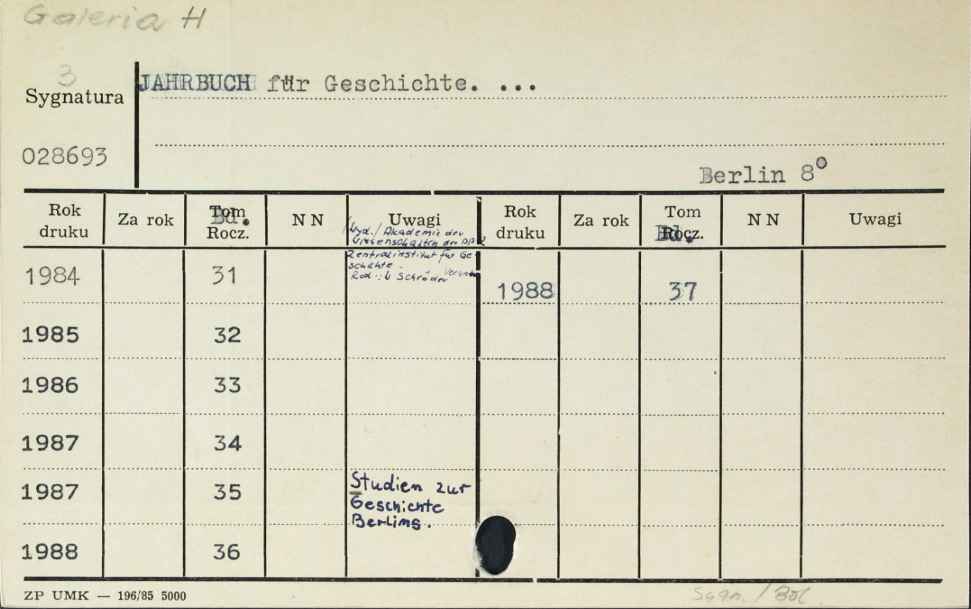 Galeria H
3
Sygnatura
JAHRBUCH für Geschichte. ...
028693
Berlin 8°
Rok druku Za rok Tom Rocz. Bd. N N Uwagi Rok druku Za rok Tom Rocz. Bd. N N Uwagi
/Wyd./ Akademie der
Wissenschaften der DDR
Zentralinstitut für Ge-
schichte.
Red.: W Schröder
1984 31
1988 37
1985 32
1986 33
1987 34
1987 35 Studien zur
Geschichte
Berlins.
1988 36
ZP UMK — 196/85 5000